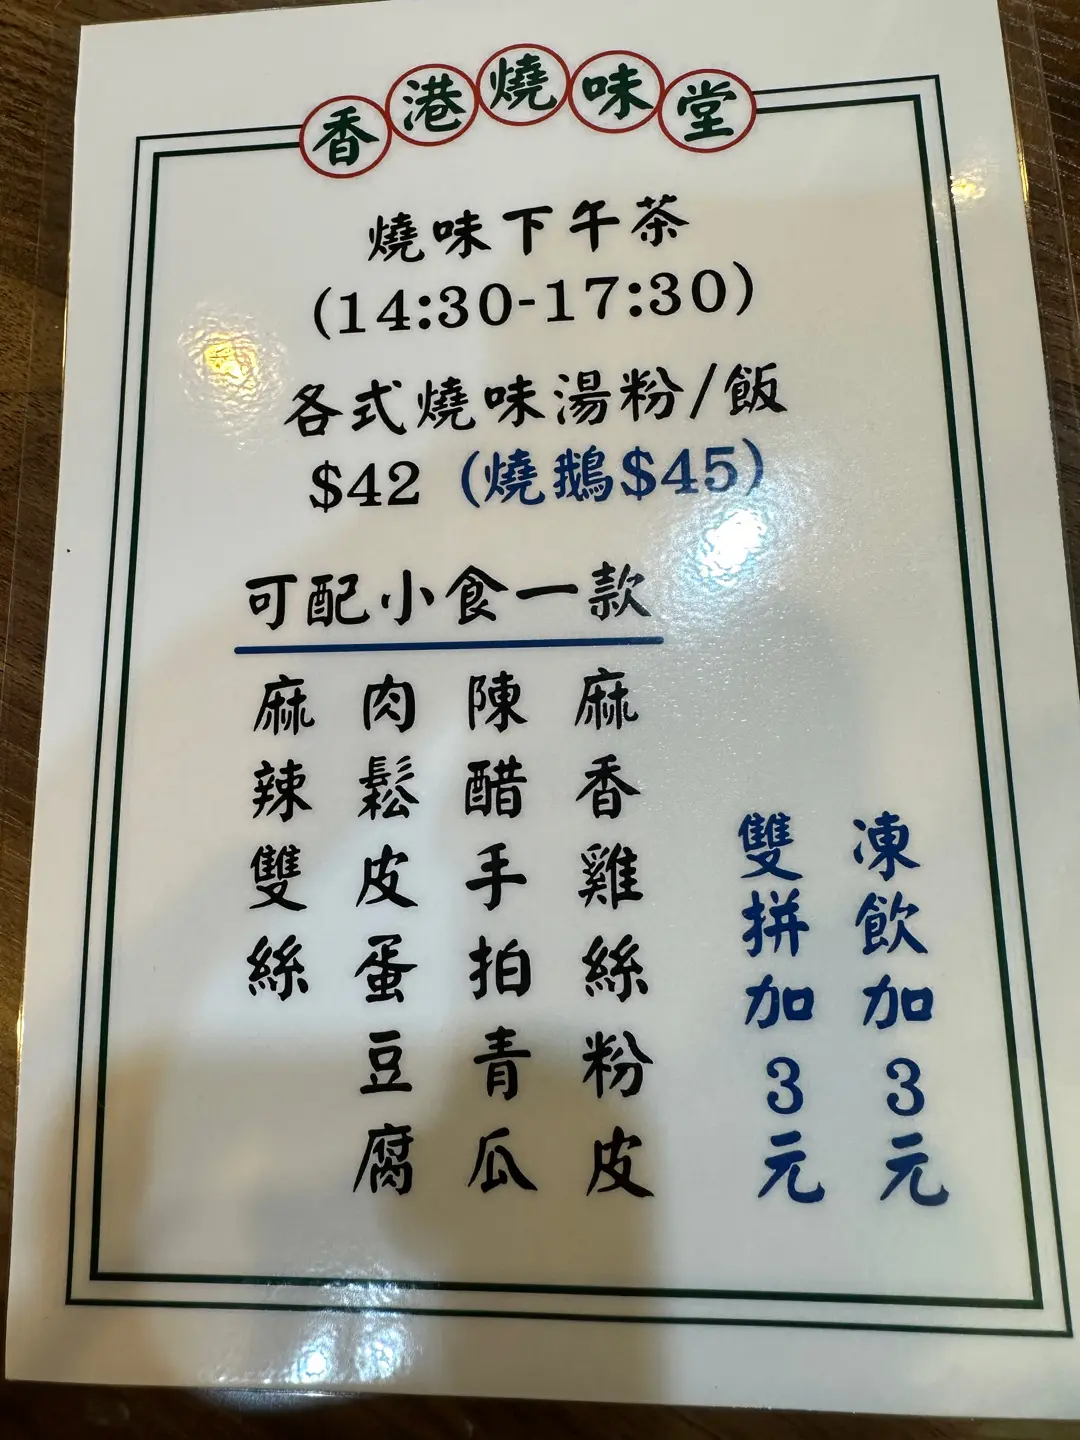 香港燒味堂
燒味下午茶
(14:30-17:30)
各式燒味湯粉/飯
$42 (燒鵝$45)
可配小食一款
凍飲加3元
雙拼加3元
麻香雞絲粉皮
陳醋手拍青瓜
肉鬆皮蛋豆腐
麻辣雙絲